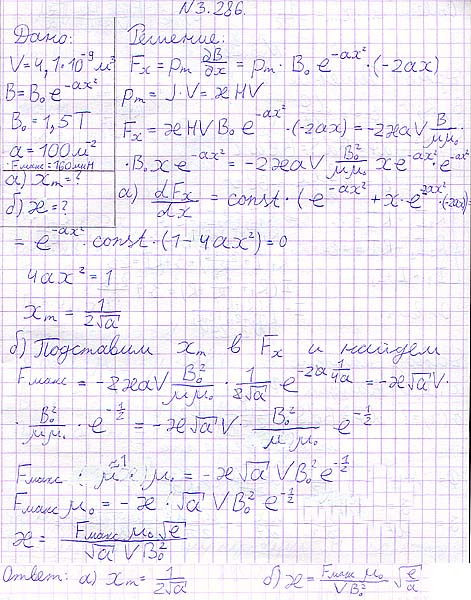 N3.286.
Дано:
V=4,1·10⁻⁹ м³
B=B₀e^(-ax²)
B₀=1,5 T
a=100 м⁻²
Fмакс=160 мкН
а) xₘ=?
б) ϰ=?
Решение:
Fₓ = pₘ ∂B/∂x = pₘ·B₀e^(-ax²)·(-2ax)
pₘ = J·V = ϰHV
Fₓ = ϰHVB₀e^(-ax²)·(-2ax) = -2ϰaV B/(μμ₀)·
·B₀xe^(-ax²) = -2ϰaV B₀²/(μμ₀) xe^(-ax²)·e^(-ax²)
а) dFₓ/dx = const·(e^(-ax²) + x·e^(-2ax²)·(-2ax))=
= e^(-ax²)·const·(1-4ax²)=0
4ax²=1
xₘ = 1/(2√a)
б) Подставим xₘ в Fₓ и найдем
Fмакс = -2ϰaV B₀²/(μμ₀) · 1/(2√a) e^(-2a·1/(4a)) = -ϰ√a V·
· B₀²/(μμ₀) · e^(-1/2) = -ϰ√a V· B₀²/(μμ₀) e^(-1/2)
Fмакс · μ^(≈1) · μ₀ = -ϰ√a VB₀²e^(-1/2)
Fмакс μ₀ = -ϰ·√a VB₀²e^(-1/2)
ϰ = Fмакс μ₀√e/(√a VB₀²)
Ответ: а) xₘ = 1/(2√a) б) ϰ = Fмакс μ₀/(VB₀²) √(e/a)